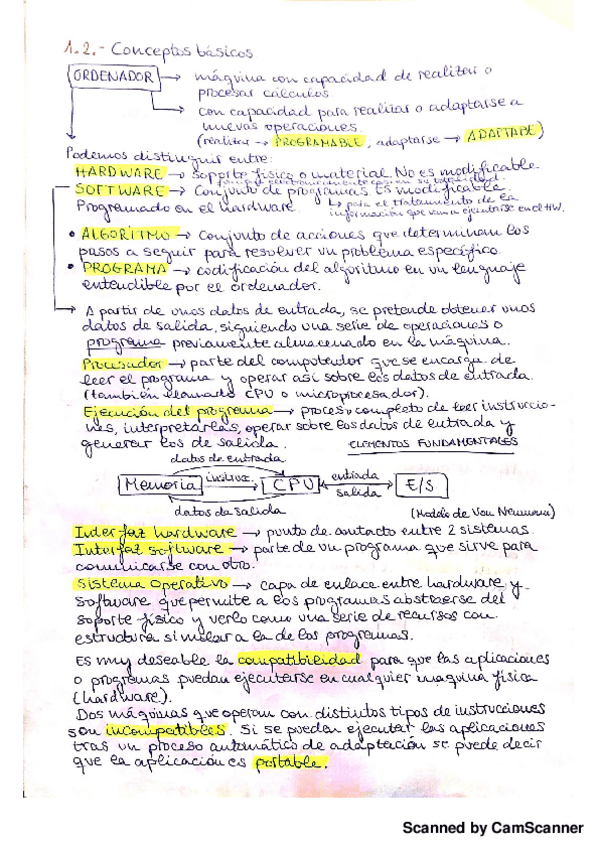 1.2.- Conceptos básicos
ORDENADOR → máquina con capacidad de realizar o
procesar cálculos.
→ con capacidad para realizar o adaptarse a
nuevas operaciones.
(realizar → PROGRAMABLE, adaptarse → ADAPTABLE)
Podemos distinguir entre:
HARDWARE → soporte físico o material. No es modificable
SOFTWARE → Conjunto de programas. Es modificable.
Programado en el hardware. ↳ para el tratamiento de la
información que van a ejecutarse en el HW.
• ALGORITMO → Conjunto de acciones que determinan los
pasos a seguir para resolver un problema específico.
• PROGRAMA → codificación del algoritmo en un lenguaje
entendible por el ordenador.
→ A partir de unos datos de entrada, se pretende obtener unos
datos de salida, siguiendo una serie de operaciones o
programa previamente almacenado en la máquina.
Procesador → parte del computador que se encarga de
leer el programa y operar así sobre los datos de entrada
(también llamado CPU o microprocesador).
Ejecución del programa → proceso completo de leer instruccio-
nes, interpretarlas, operar sobre los datos de entrada y
generar los de salida. ELEMENTOS FUNDAMENTALES
datos de entrada
Memoria instrucc. CPU entrada salida E/S
datos de salida (Modelo de Von Neumann)
Interfaz hardware → punto de contacto entre 2 sistemas.
Interfaz software → parte de un programa que sirve para
comunicarse con otro.
Sistema Operativo → capa de enlace entre hardware y
software que permite a los programas abstraerse del
soporte físico y verlo como una serie de recursos con
estructura similar a la de los programas.
Es muy deseable la compatibilidad para que las aplicaciones
o programas puedan ejecutarse en cualquier maquina física
(hardware).
Dos máquinas que operan con distintos tipos de instrucciones
son incompatibles. Si se pueden ejecutar las aplicaciones
tras un proceso automático de adaptación se puede decir
que la aplicación es portable.
Scanned by CamScanner